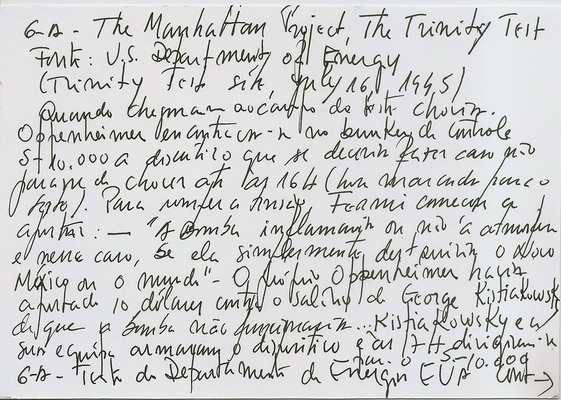 6-A - The Manhattan Project, The Trinity Test
Fonte: U.S. Department of Energy
(Trinity Test site, July 16, 1945)
Quando chegaram ao campo de teste chovia.
Oppenheimer encontrava-se no bunker de controle
S-10.000 a discutir o que se deveria fazer caso não
parasse de chover até às 16H (hora marcada para o
teste). Para romper a tensão Fermi começou a
apostar: - "A Bomba inflamaria ou não a atmosfera
e nesse caso, se ela simplesmente destruiria o Novo
México ou o mundo" - O próprio Oppenheimer havia
apostado 10 dólares contra o salário de George Kistiakowsky
de que a bomba não funcionaria... Kistiakowsky e a
sua equipa armaram o dispositivo e às 17H dirigiram-se
para o S-10.000
6-A - Texto do Departamento de Energia EUA cont→